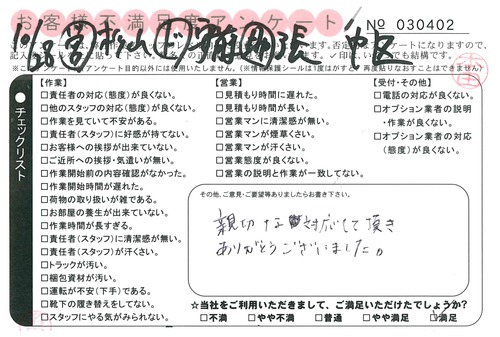 お客様不満足度アンケート
No 030402
【作業】
□責任者の対応(態度)が良くない。
□他のスタッフの対応(態度)が良くない。
□作業を見ていて不安がある。
□責任者(スタッフ)に好感が持てない。
□お客様への挨拶が出来ていない。
□ご近所への挨拶・気遣いが無い。
□作業開始前の内容確認がなかった。
□作業開始時間が遅れた。
□荷物の取り扱いが雑である。
□お部屋の養生が出来ていない。
□作業時間が長すぎる。
□責任者(スタッフ)に清潔感が無い。
□責任者(スタッフ)が汗くさい。
□トラックが汚い。
□梱包資材が汚い。
□運転が不安(下手)である。
□靴下の履き替えをしてない。
□スタッフにやる気がみられない。
【営業】
□見積もり時間に遅れた。
□見積もり時間が長い。
□営業マンに清潔感が無い。
□営業マンが煙草くさい。
□営業マンが汗くさい。
□営業態度が良くない。
□営業の説明と作業が一致してない。
【受付・その他】
□電話の対応が良くない。
□オプション業者の説明
・作業が良くない。
□オプション業者の対応
(態度)が良くない。
●チェックリスト
その他、ご意見・ご要望等ありましたらお書き下さい。
親切な対応して頂き
ありがとうございました。
☆当社をご利用いただきまして、ご満足いただけたでしょうか?
□不満 □やや不満 □普通 □やや満足 □満足